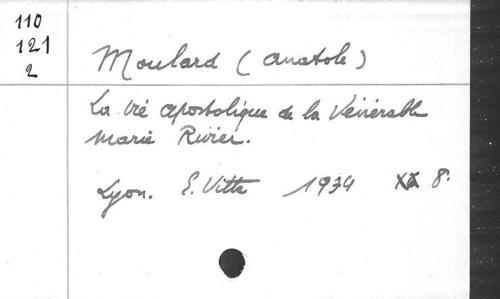 110
121
2
Moulard (Anatole)
La vie apostolique de la Vénérable
Marie Rivier.
Lyon. E. Vitte 1934 8°